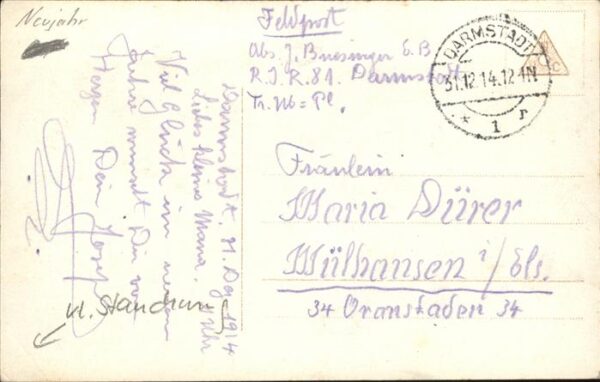 Neujahr
Feldpost
Abs. J. Buesinger E.B
R.I.R. 81. Darmstadt
Tr. Ub = Pl.
DARMSTADT
31.12.14.12-1N
* 1
Darmstadt, 31. Dez. 1914
Liebes kleines
Viel Glück im neuen
Jahre wünscht Dir von
Herzen Dein Josef
Fräulein
Maria Dürer
Mülhausen i/Els.
34 Oranstaden 34